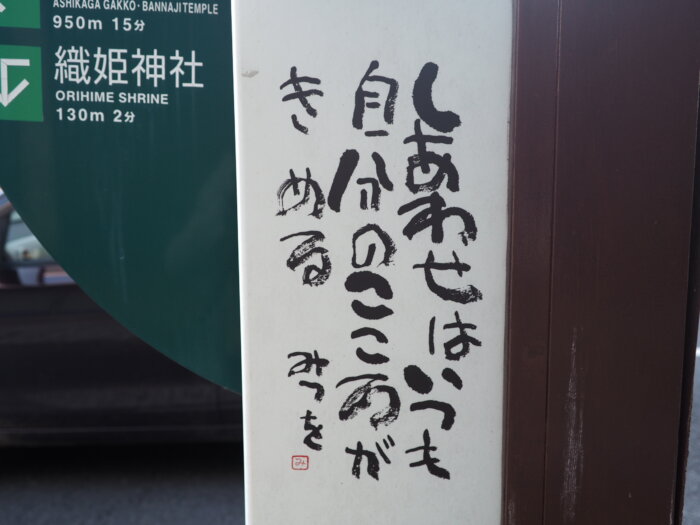 ASHIKAGA GAKKO・BANNAJI TEMPLE
950m 15分
織姫神社
ORIHIME SHRINE
130m 2分
しあわせはいつも
自分のこころが
きめる
みつを
み